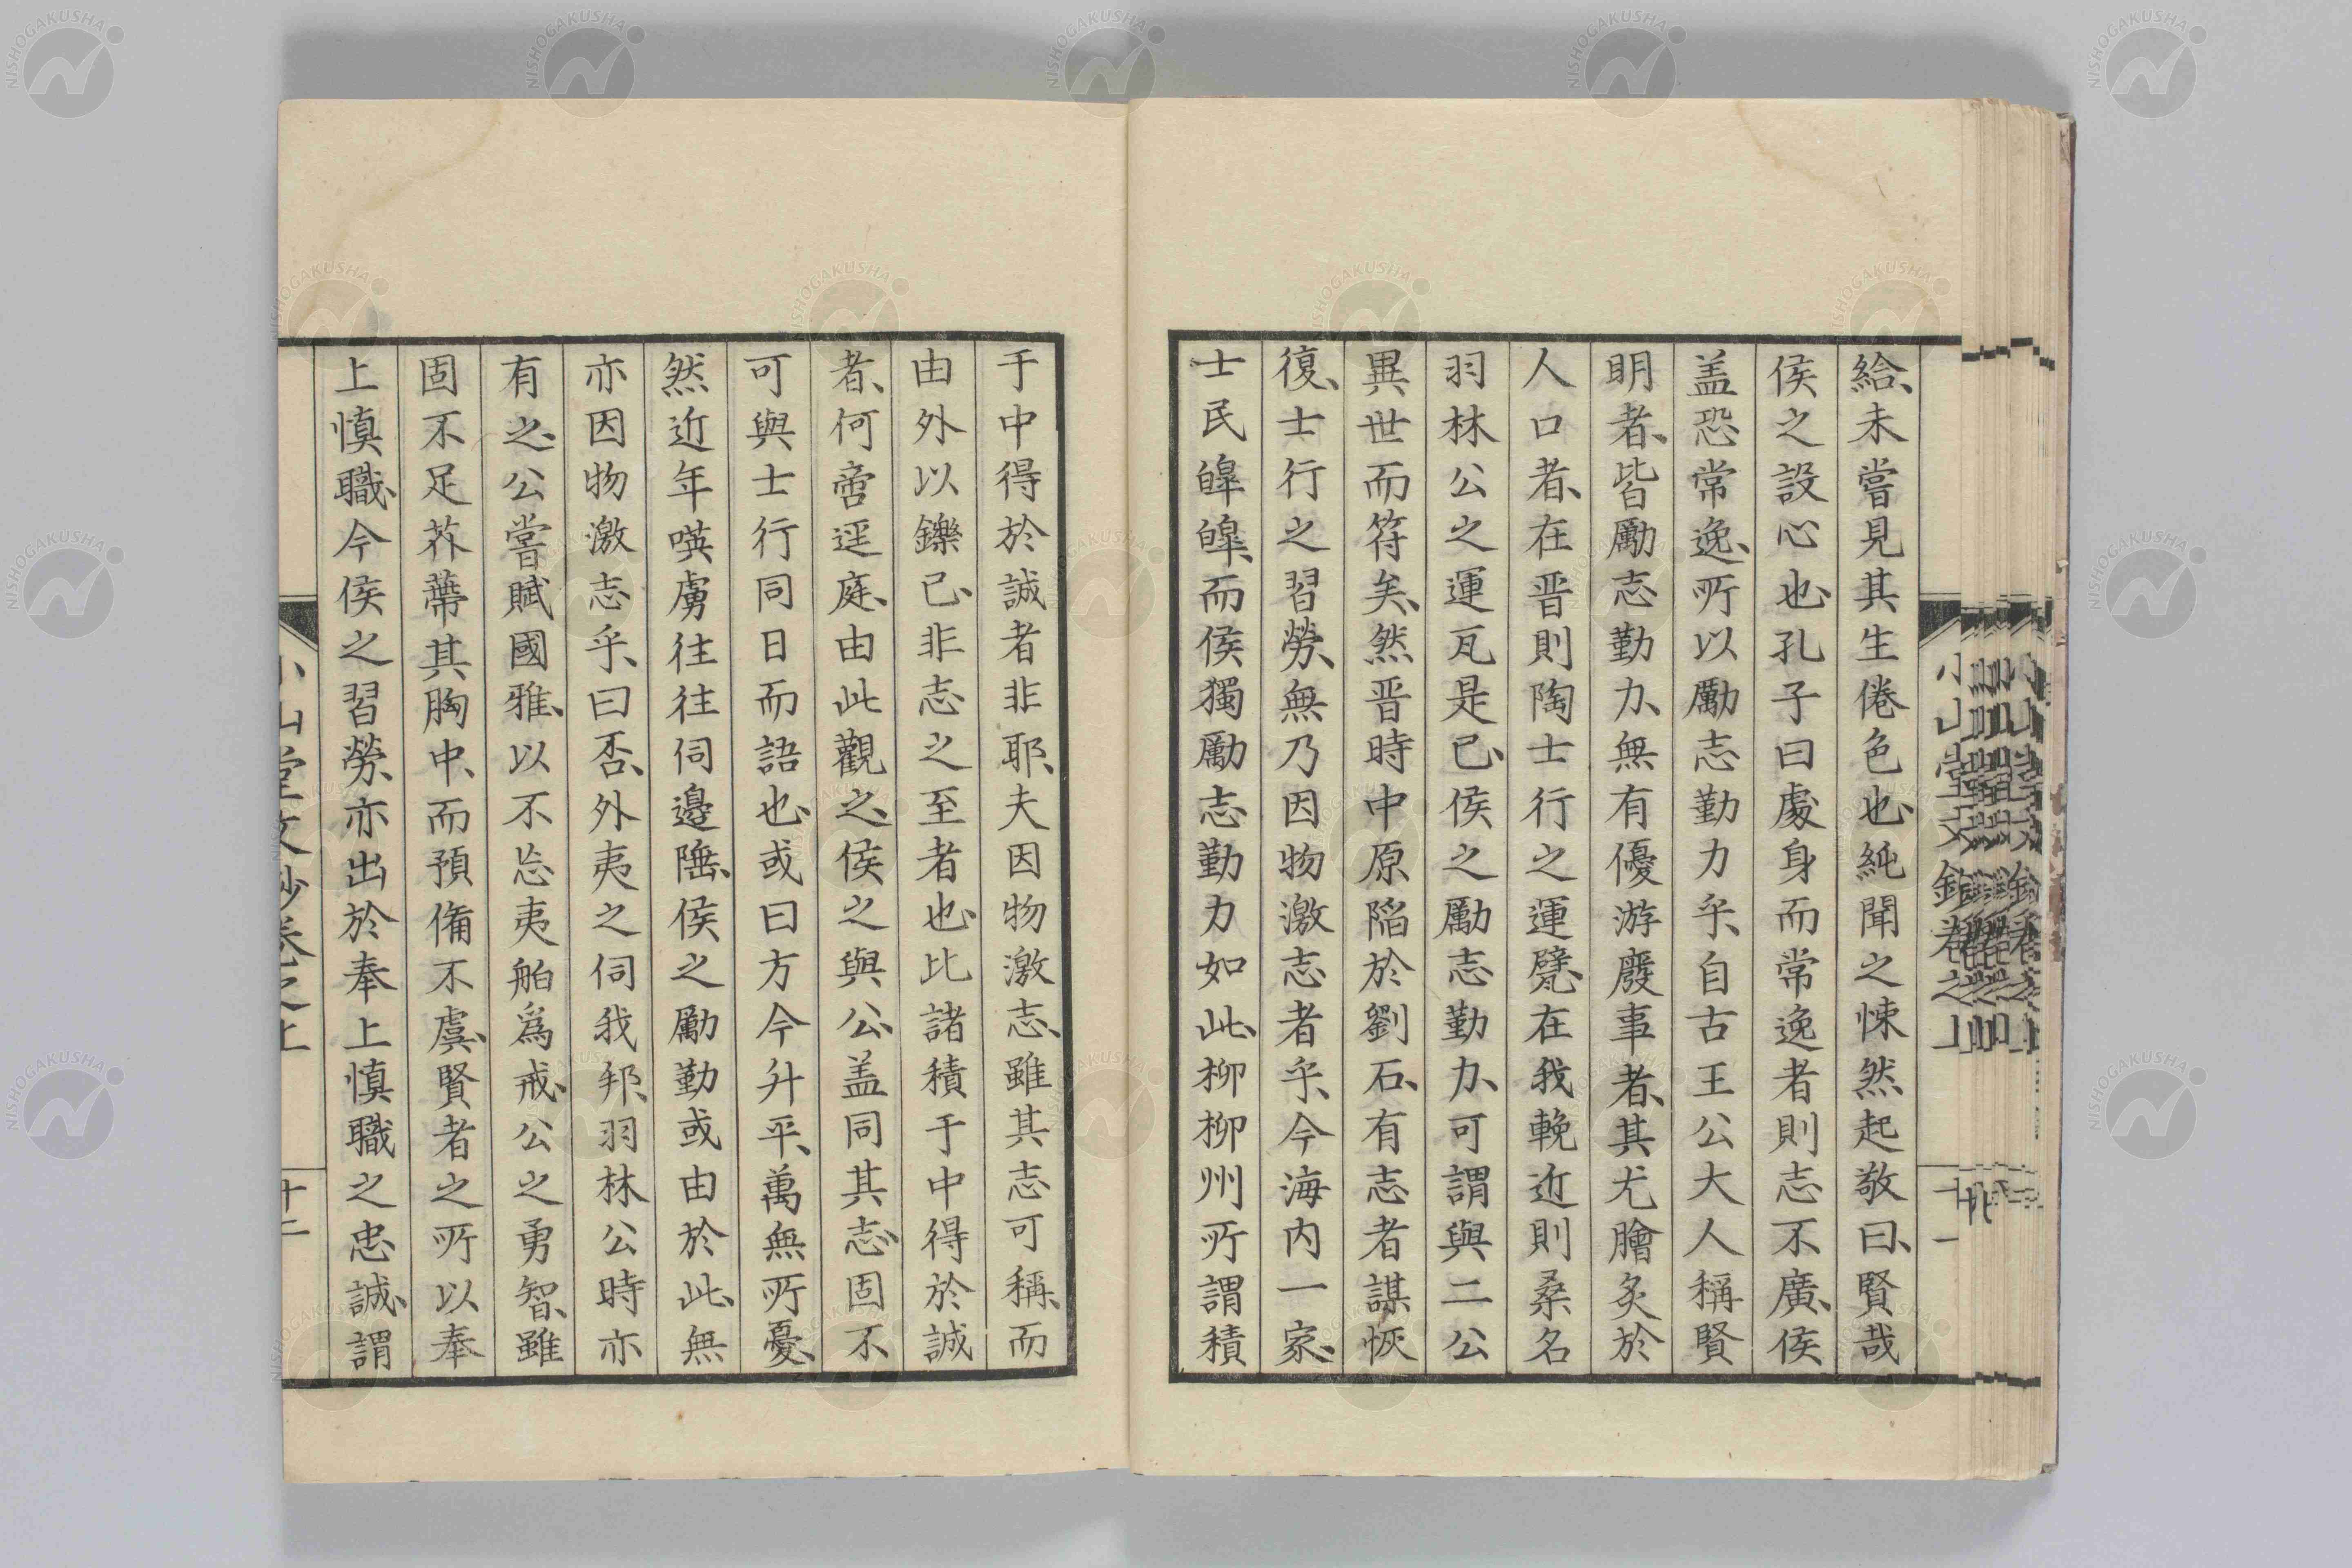 給、未嘗見其生倦色也、純聞之悚然起敬曰、賢哉
侯之設心也、孔子曰處身而常逸者則志不廣、侯
盖恐常逸、所以勵志勤力乎、自古王公大人稱賢
明者、皆勵志勤力、無有優游廢事者、其尤膾炙於
人口者、在晋則陶士行之運甓、在我輓近則桑名
羽林公之運瓦是已、侯之勵志勤力、可謂與二公
異世而符矣、然晋時中原陷於劉石、有志者謀恢
復、士行之習勞、無乃因物激志者乎、今海内一家、
士民皥皥、而侯獨勵志勤力如此、柳柳州所謂積
于中得於誠者非耶、夫因物激志、雖其志可稱、而
由外以鑠已、非志之至者也、比諸積于中得於誠
者、何啻逕庭、由此觀之、侯之與公、盖同其志、固不
可與士行同日而語也、或曰方今升平、萬無所憂、
然近年㗲虜往往伺邊陲、侯之勵勤或由於此、無
亦因物激志乎、曰否、外夷之伺我邦、羽林公時亦
有之、公嘗賦國雅、以不忘夷舶爲戒、公之勇智、雖
固不足芥蔕其胸中、而預備不虞、賢者之所以奉
上慎職、今侯之習勞、亦出於奉上慎職之忠誠、謂
小山堂文鈔卷之上
十二
NISHOGAKUSHA